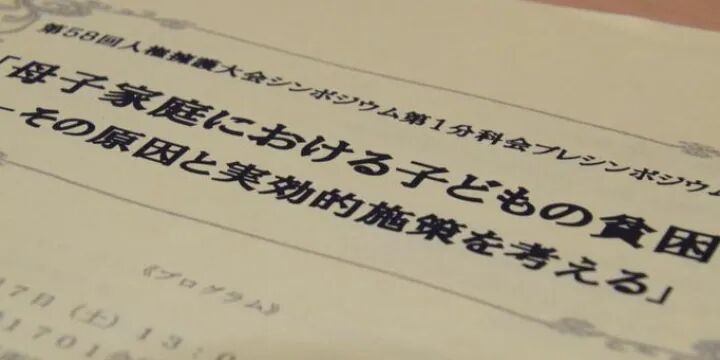 第58回人権擁護大会シンポジウム第1分科会プレシンポジウム
「母子家庭における子どもの貧困
－その原因と実効的施策を考える」
《プログラム》
7日（土）13：0
1701会